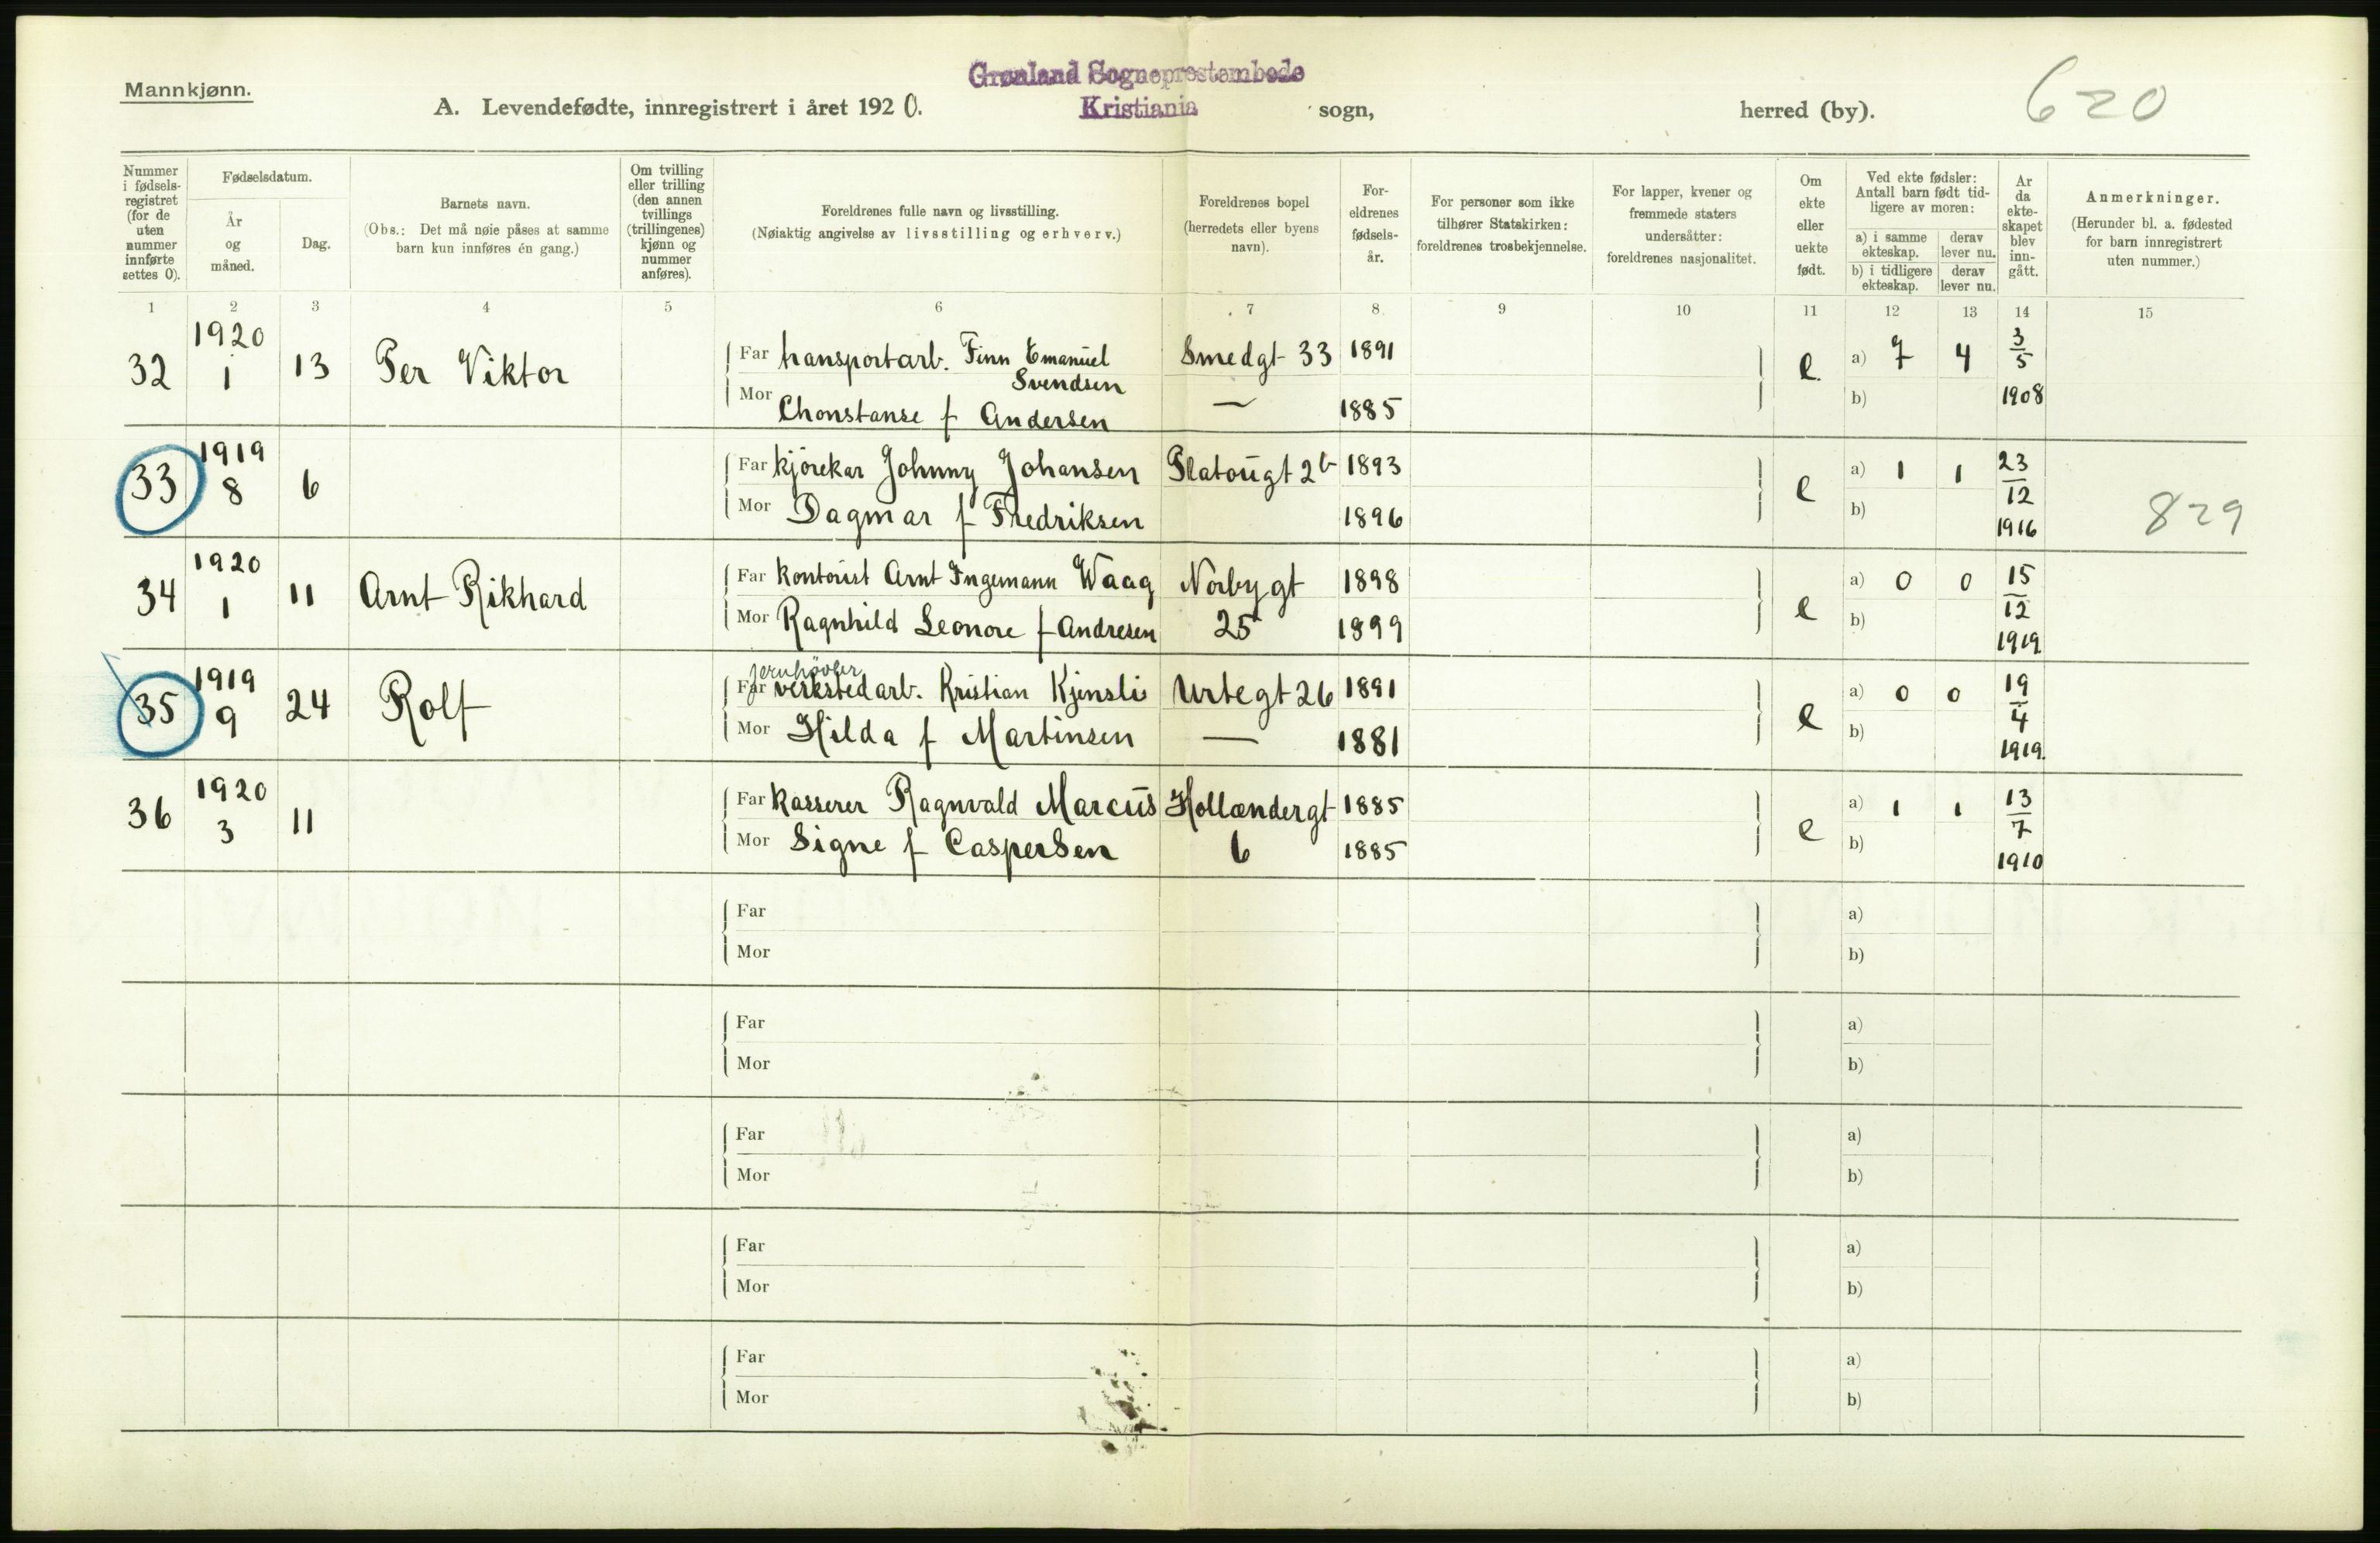 Mannkjønn.
Grønland Sogneprestembede
A. Levendefødte, innregistrert i året 1920. Kristiania sogn, herred (by). 620
Nummer i fødselsregistret (for de uten nummer innførte settes 0).
Fødselsdatum.
År og måned.
Dag.
Barnets navn.
(Obs.: Det må nøie påses at samme barn kun innføres én gang.)
Om tvilling eller trilling (den annen tvillings (trillingenes) kjønn og nummer anføres).
Foreldrenes fulle navn og livsstilling.
(Nøiaktig angivelse av livsstilling og erhverv.)
Foreldrenes bopel
(herredets eller byens navn).
Foreldrenes fødselsår.
For personer som ikke tilhører Statskirken: foreldrenes trosbekjennelse.
For lapper, kvener og fremmede staters undersåtter: foreldrenes nasjonalitet.
Om ekte eller uekte født.
Ved ekte fødsler: Antall barn født tidligere av moren:
a) i samme ekteskap. derav lever nu.
b) i tidligere ekteskap. derav lever nu.
År da ekteskapet blev inngått.
Anmerkninger.
(Herunder bl. a. fødested for barn innregistrert uten nummer.)
1 2 3 4 5 6 7 8 9 10 11 12 13 14 15
32 1920 1 13 Per Viktor Far transportarb. Finn Emanuel Svendsen Smedgt 33 1891 e. a) 7 4 3/5 1908
Mor Chonstanse f Andersen — 1885 b)
33 1919 8 6 Far kjørekar Johnny Johansen Platougt 2b 1893 e a) 1 1 23/12 1916 829
Mor Dagmar f Fredriksen 1896 b)
34 1920 1 11 Arnt Rikhard Far kontorist Arnt Ingemann Waag Norbygt 25 1898 e a) 0 0 15/12 1919
Mor Ragnhild Leonore f Andresen 1899 b)
jernhøvler
35 1919 9 24 Rolf Far verkstedarb. Kristian Kjensli Urtegt 26 1891 e a) 0 0 19/4 1919.
Mor Hilda f Martinsen — 1881 b)
36 1920 3 11 Far kasserer Ragnvald Marcus Hollændergt 6 1885 e a) 1 1 13/7 1910
Mor Signe f Caspersen 1885 b)
Far a)
Mor b)
Far a)
Mor b)
Far a)
Mor b)
Far a)
Mor b)
Far a)
Mor b)